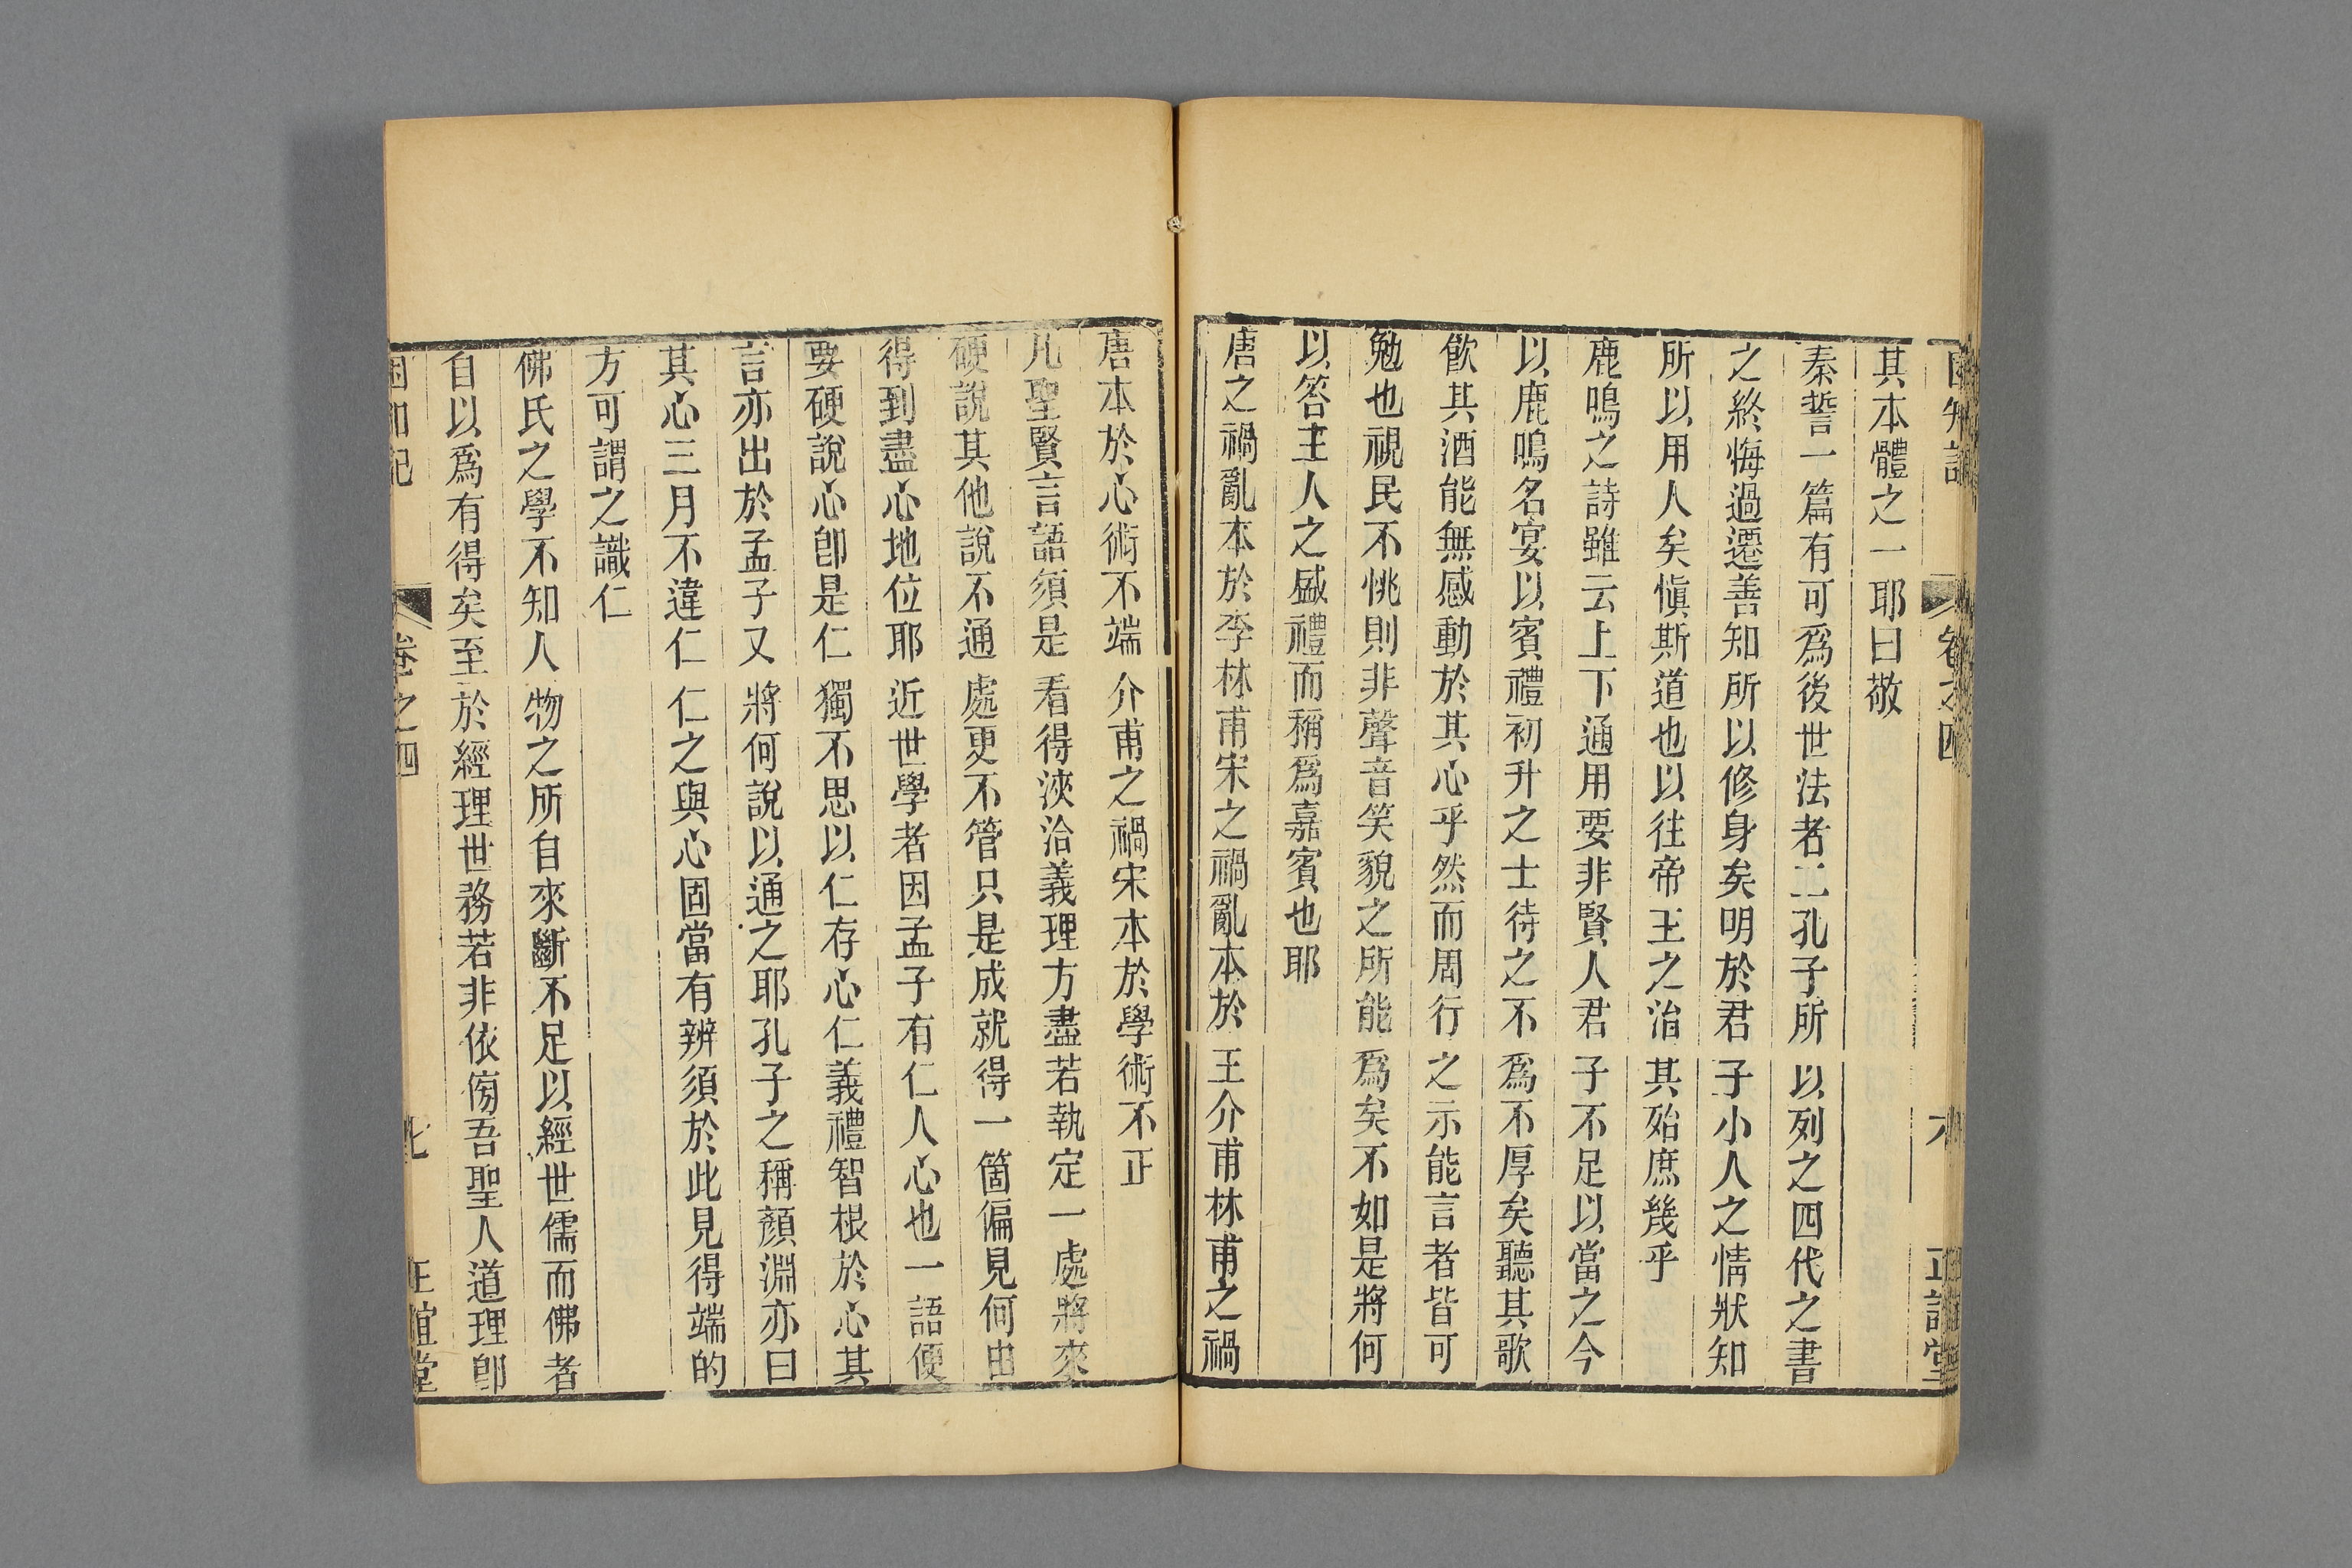 困知記 卷之四 六 正誼堂
其本體之一耶曰敬
秦誓一篇有可爲後世法者二孔子所以列之四代之書
之終悔過遷善知所以修身矣明於君子小人之情狀知
所以用人矣愼斯道也以往帝王之治其殆庶幾乎
鹿鳴之詩雖云上下通用要非賢人君子不足以當之今
以鹿鳴名宴以賓禮初升之士待之不爲不厚矣聽其歌
飮其酒能無感動於其心乎然而周行之示能言者皆可
勉也視民不恌則非聲音笑貌之所能爲矣不如是將何
以答主人之盛禮而稱爲嘉賓也耶
唐之禍亂本於李林甫宋之禍亂本於王介甫林甫之禍
唐本於心術不端介甫之禍宋本於學術不正
凡聖賢言語須是看得浹洽義理方盡若執定一處將來
硬說其他說不通處更不管只是成就得一箇偏見何由
得到盡心地位耶近世學者因孟子有仁人心也一語便
要硬說心卽是仁獨不思以仁存心仁義禮智根於心其
言亦出於孟子又將何說以通之耶孔子之稱顏淵亦曰
其心三月不違仁仁之與心固當有辨須於此見得端的
方可謂之識仁
佛氏之學不知人物之所自來斷不足以經世儒而佛者
自以爲有得矣至於經理世務若非依傍吾聖人道理卽
困知記 卷之四 七 正誼堂